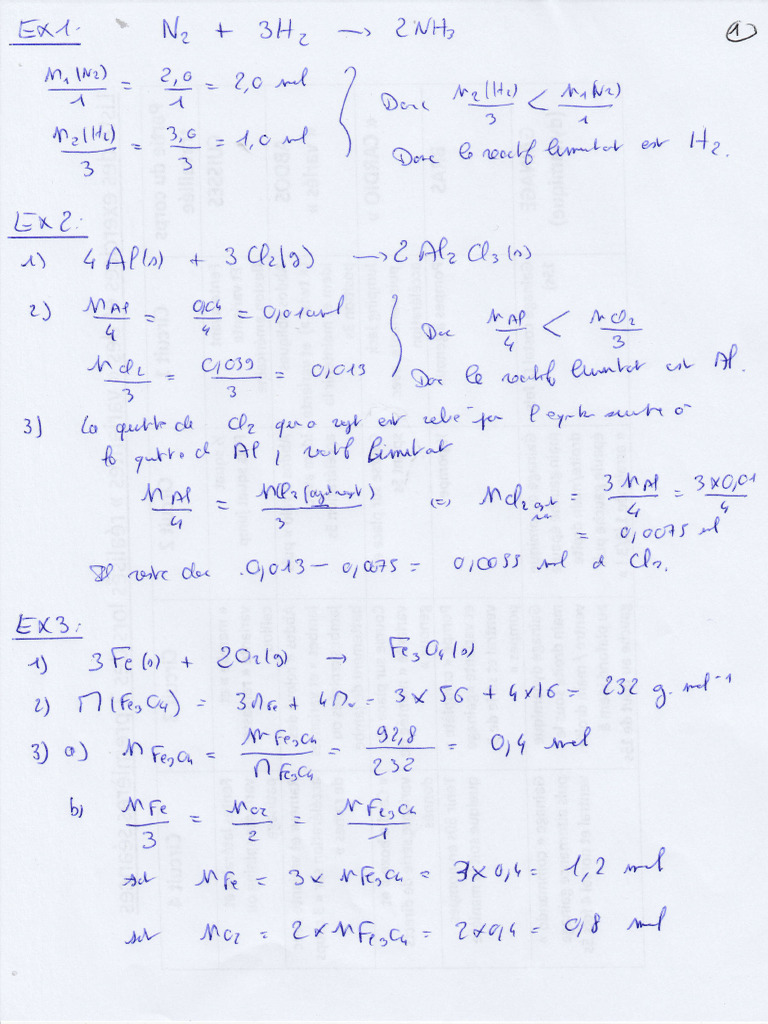 Ex1: N₂ + 3H₂ → 2NH₃ 1
n₁(N₂)/1 = 2,0/1 = 2,0 mol
Donc n₂(H₂)/3 < n₁(N₂)/1
n₂(H₂)/3 = 3,0/3 = 1,0 mol
Donc le réactif limitant est H₂.
Ex2:
1) 4Al(s) + 3Cl₂(g) → 2Al₂Cl₃(s)
2) nAl/4 = 0,04/4 = 0,01 mol
Donc nAl/4 < nCl₂/3
nCl₂/3 = 0,039/3 = 0,013
Donc le réactif limitant est Al.
3) La quantité de Cl₂ qui a réagit est relié par l'équation suivante à
la quantité d Al, réactif limitant
nAl/4 = nCl₂(ayant réagit)/3 (=) nCl₂ = 3nAl/4 = 3×0,01/4
= 0,0075 mol
Il reste donc 0,013 – 0,0075 = 0,0055 mol d Cl₂.
Ex3:
1) 3Fe(s) + 2O₂(g) → Fe₃O₄(s)
2) M(Fe₃O₄) = 3MFe + 4Mo = 3×56 + 4×16 = 232 g.mol⁻¹
3) a) nFe₃O₄ = mFe₃O₄/MFe₃O₄ = 92,8/232 = 0,4 mol
b) nFe/3 = nO₂/2 = nFe₃O₄/1
soit nFe = 3×nFe₃O₄ = 3×0,4 = 1,2 mol
soit nO₂ = 2×nFe₃O₄ = 2×0,4 = 0,8 mol